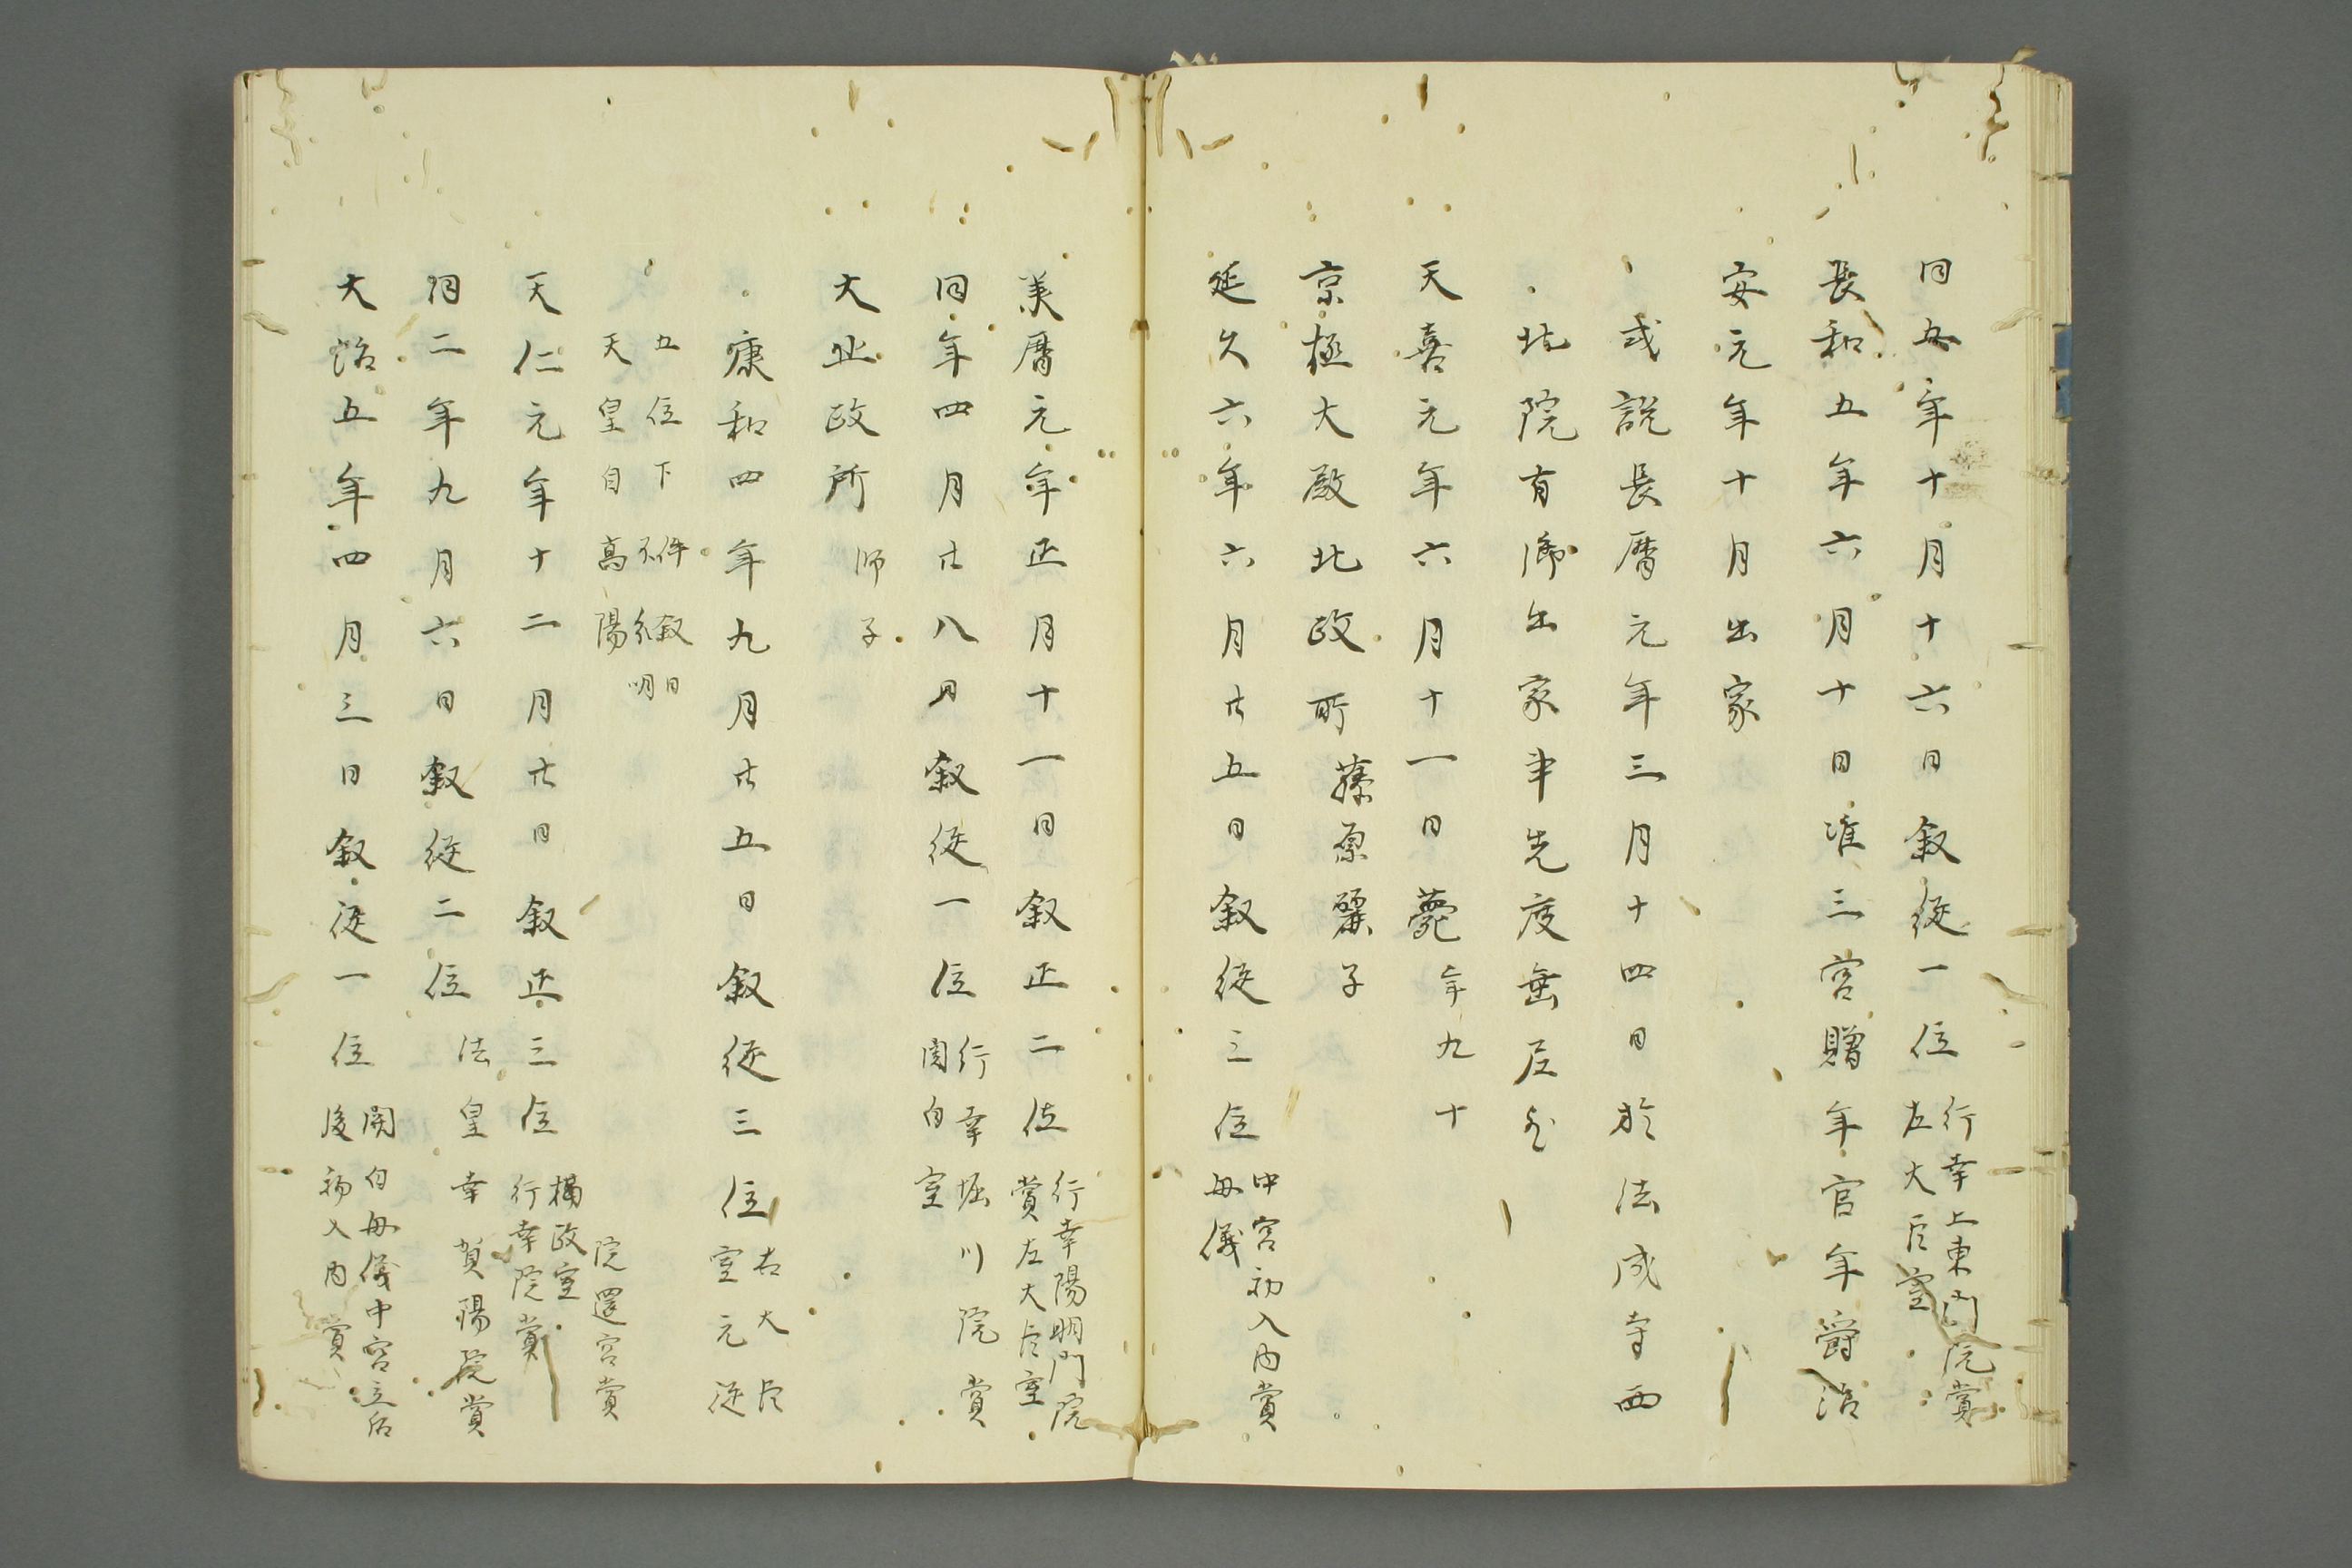 同五年十月十六日叙従一位行幸上東門院賞
左大臣室
長和五年六月十日准三宮贈年官年爵治
安元年十月出家
或説長暦元年三月十四日於法成寺西
北院有御出家事先度垂尼歟
天喜元年六月十一日薨年九十
京極大殿北政所藤原麗子
延久六年六月廿五日叙従三位中宮初入内賞
母儀
美暦元年正月十一日叙正二位行幸陽明門院
賞左大臣室
同年四月廿八日叙従一位行幸堀川院賞
関白室
大北政所師子
康和四年九月廿五日叙従三位右大臣
室元従
五位下件叙日
不分明
天皇自高陽院還宮賞
天仁元年十二月廿日叙正三位摂政室
行幸院賞
同二年九月六日叙従二位法皇幸賀陽院賞
大治五年四月三日叙従一位関白母儀中宮立后
後初入内賞